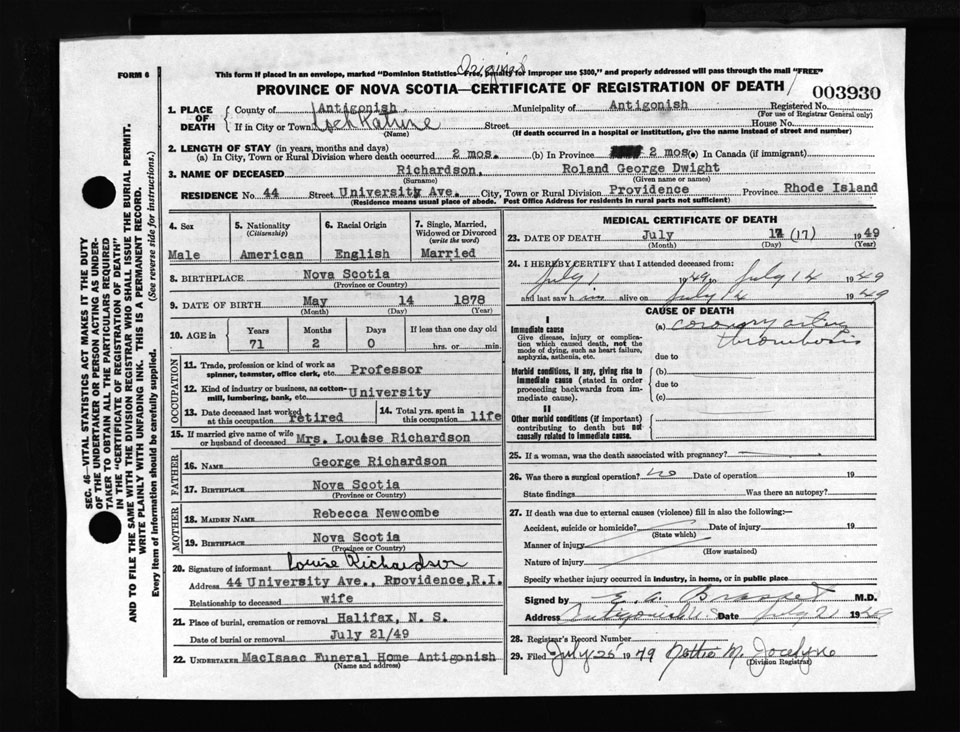 FORM 6
Original
This form if placed in an envelope, marked "Dominion Statistics—Free, penalty for improper use $300," and properly addressed will pass through the mail "FREE"
PROVINCE OF NOVA SCOTIA—CERTIFICATE OF REGISTRATION OF DEATH
003930
1. PLACE OF DEATH County of Antigonish Municipality of Antigonish Registered No.
(For use of Registrar General only)
If in City or Town Loch Katrine Street House No.
(Name) (If death occurred in a hospital or institution, give the name instead of street and number)
2. LENGTH OF STAY (in years, months and days)
(a) In City, Town or Rural Division where death occurred 2 mos. (b) In Province 2 mos. (c) In Canada (if immigrant)
3. NAME OF DECEASED Richardson, Roland George Dwight
(Surname) (Given name or names)
RESIDENCE No. 44 Street University Ave. City, Town or Rural Division Providence Province Rhode Island
(Residence means usual place of abode. Post Office Address for residents in rural parts not sufficient)
4. Sex 5. Nationality (Citizenship) 6. Racial Origin 7. Single, Married, Widowed or Divorced (write the word)
Male American English Married
8. BIRTHPLACE Nova Scotia
(Province or Country)
9. DATE OF BIRTH May 14 1878
(Month) (Day) (Year)
10. AGE in Years Months Days If less than one day old
71 2 0 hrs. or min.
OCCUPATION
11. Trade, profession or kind of work as spinner, teamster, office clerk, etc. Professor
12. Kind of industry or business, as cotton-mill, lumbering, bank, etc. University
13. Date deceased last worked at this occupation retired 14. Total yrs. spent in this occupation life
15. If married give name of wife or husband of deceased Mrs. Louise Richardson
FATHER
16. NAME George Richardson
17. BIRTHPLACE Nova Scotia
(Province or Country)
MOTHER
18. MAIDEN NAME Rebecca Newcombe
19. BIRTHPLACE Nova Scotia
(Province or Country)
20. Signature of informant Louise Richardson
Address 44 University Ave., Providence, R.I.
Relationship to deceased wife
21. Place of burial, cremation or removal Halifax, N. S.
Date of burial or removal July 21/49
22. UNDERTAKER MacIsaac Funeral Home Antigonish
(Name and address)
MEDICAL CERTIFICATE OF DEATH
23. DATE OF DEATH July 17 (17) 1949
(Month) (Day) (Year)
24. I HEREBY CERTIFY that I attended deceased from:
July 1 1949 to July 14 1949
and last saw him alive on July 14 1949
CAUSE OF DEATH
I
Immediate cause
Give disease, injury or complication which caused death, not the mode of dying, such as heart failure, asphyxia, asthenia, etc.
(a) coronary artery
thrombosis
due to
Morbid conditions, if any, giving rise to immediate cause (stated in order proceeding backwards from immediate cause).
(b)
due to
(c)
II
Other morbid conditions (if important) contributing to death but not causally related to immediate cause.
25. If a woman, was the death associated with pregnancy?
26. Was there a surgical operation? no Date of operation 19
State findings Was there an autopsy?
27. If death was due to external causes (violence) fill in also the following:—
Accident, suicide or homicide? Date of injury 19
(State which)
Manner of injury
(How sustained)
Nature of injury
Specify whether injury occurred in industry, in home, or in public place
Signed by E. A. M.D.
Address Antigonish N.S. Date July 21 1949
28. Registrar's Record Number
29. Filed July 25 1949 M. Jocelyn
(Division Registrar)
SEC. 46—VITAL STATISTICS ACT MAKES IT THE DUTY
OF THE UNDERTAKER OR PERSON ACTING AS UNDER-
TAKER TO OBTAIN ALL THE PARTICULARS REQUIRED
IN THE "CERTIFICATE OF REGISTRATION OF DEATH"
AND TO FILE THE SAME WITH THE DIVISION REGISTRAR WHO SHALL ISSUE THE BURIAL PERMIT.
WRITE PLAINLY WITH UNFADING INK. THIS IS A PERMANENT RECORD.
Every item of information should be carefully supplied. (See reverse side for instructions.)